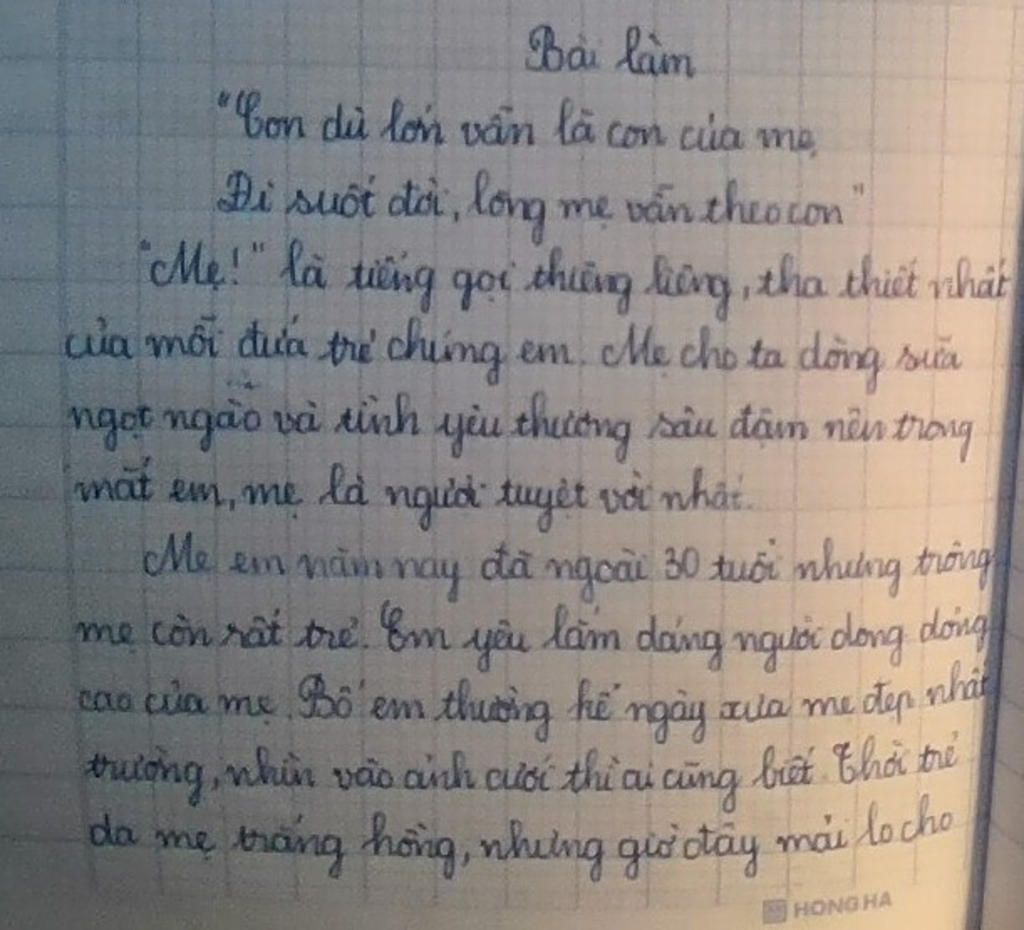 Bài làm
"Con dù lớn vẫn là con của mẹ
Đi suốt đời, lòng mẹ vẫn theo con"
"Mẹ!" là tiếng gọi thiêng liêng, tha thiết nhất
của mỗi đứa trẻ chúng em. Mẹ cho ta dòng sữa
ngọt ngào và tình yêu thương sâu đậm nên trong
mắt em, mẹ là người tuyệt vời nhất.
Mẹ em năm nay đã ngoài 30 tuổi nhưng trông
mẹ còn rất trẻ. Em yêu lắm dáng người dong dỏng
cao của mẹ. Bố em thường kể ngày xưa mẹ đẹp nhất
trường, nhìn vào ảnh cưới thì ai cũng biết. Thời trẻ
da mẹ trắng hồng, nhưng giờ đây mải lo cho
HONG HA